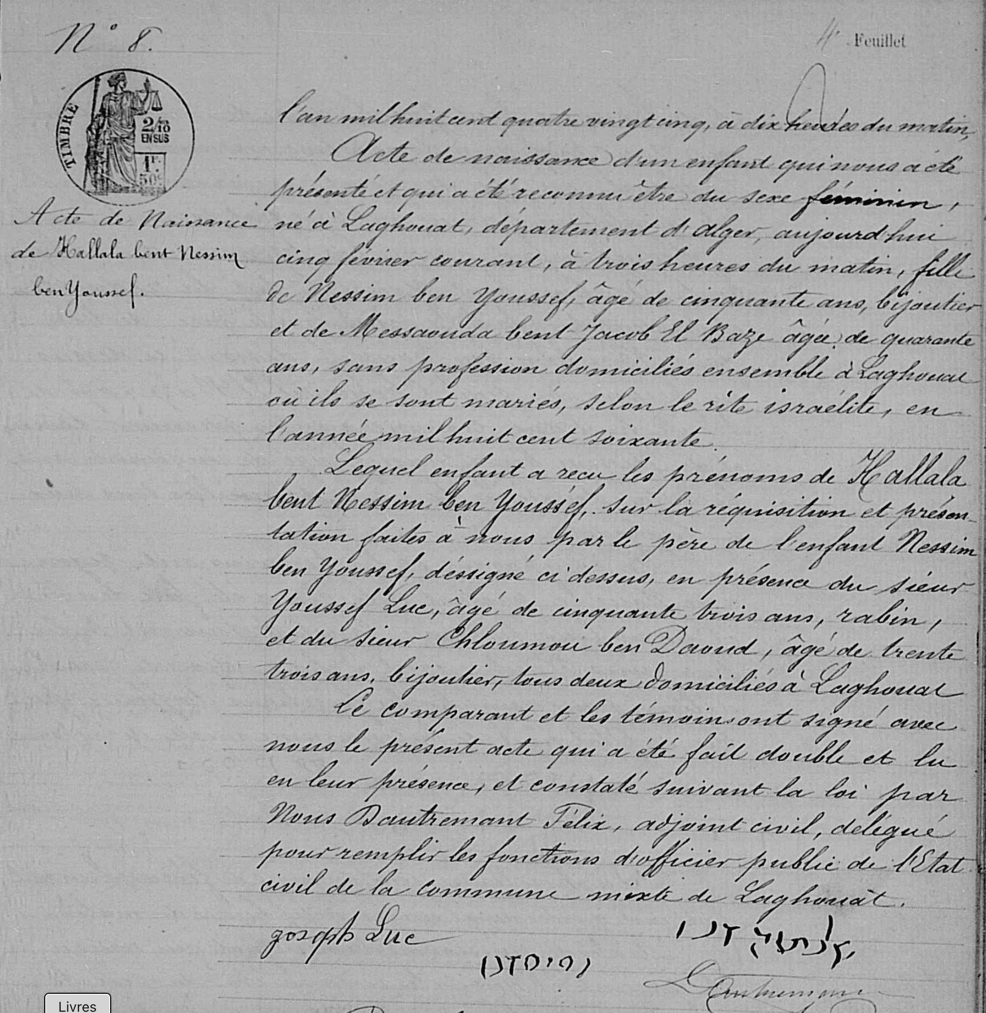 N° 8.
4 Feuillet
TIMBRE
2/10
EN SUS
1F.
50c
Acte de Naissance
de Hallala bent Nessim
ben Youssef.
l'an mil huit cent quatre vingt cinq, à dix heures du matin,
Acte de naissance d'un enfant qui nous a été
présenté et qui a été reconnu être du sexe féminin,
né à Laghouat, département d'Alger, aujourd'hui
cinq février courant, à trois heures du matin, fille
de Nessim ben Youssef, âgé de cinquante ans, bijoutier
et de Messaouda bent Jacob El Baze âgée de quarante
ans, sans profession domiciliés ensemble à Laghouat
où ils se sont mariés, selon le rite israélite, en
l'année mil huit cent soixante.
Lequel enfant a reçu les prénoms de Hallala
bent Nessim ben Youssef, sur la réquisition et présen-
tation faites à nous par le père de l'enfant Nessim
ben Youssef, déssigné ci dessus, en présence du sieur
Youssef Luc, âgé de cinquante trois ans, rabin,
et du sieur Chloumou ben Daoud, âgé de trente
trois ans, bijoutier, tous deux domiciliés à Laghouat
Le comparant et les témoins ont signé avec
nous le présent acte qui a été fait double et lu
en leur présence, et constaté suivant la loi par
Nous Dautremant Félix, adjoint civil, délégué
pour remplir les fonctions d'officier public de l'Etat
civil de la commune mixte de Laghouat.
Joseph Luc
Livres